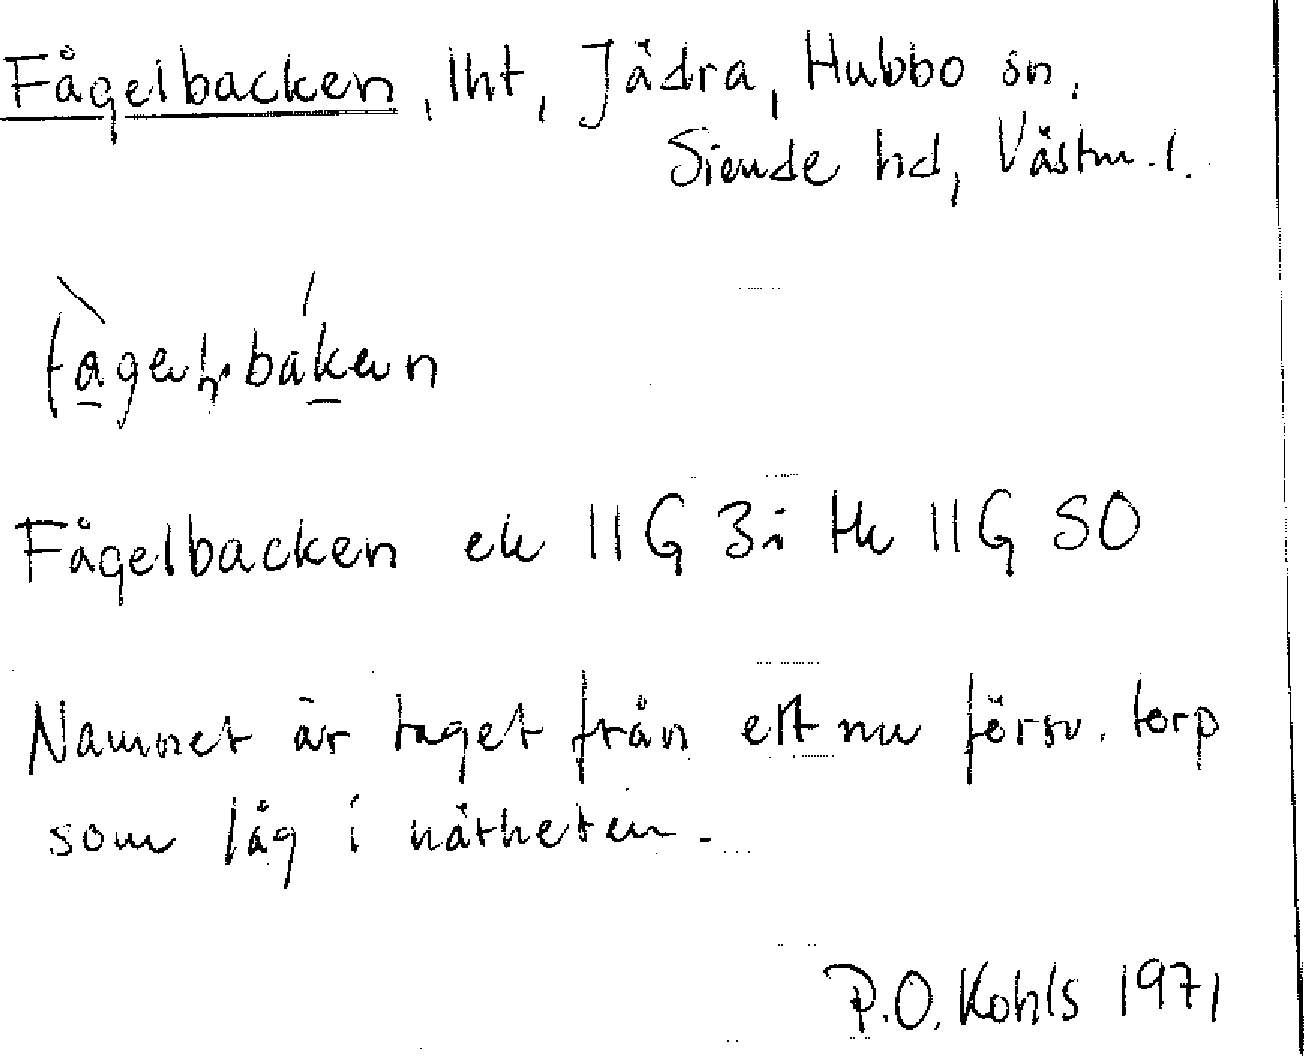 Fågelbacken, lht, Jädra, Hubbo sn,
Siende hd, Västm. l.
Fågelbacken ek 11G 3i tk 11G SO
Namnet är taget från ett nu försv. torp
som låg i närheten.
P.O. Kohls 1971